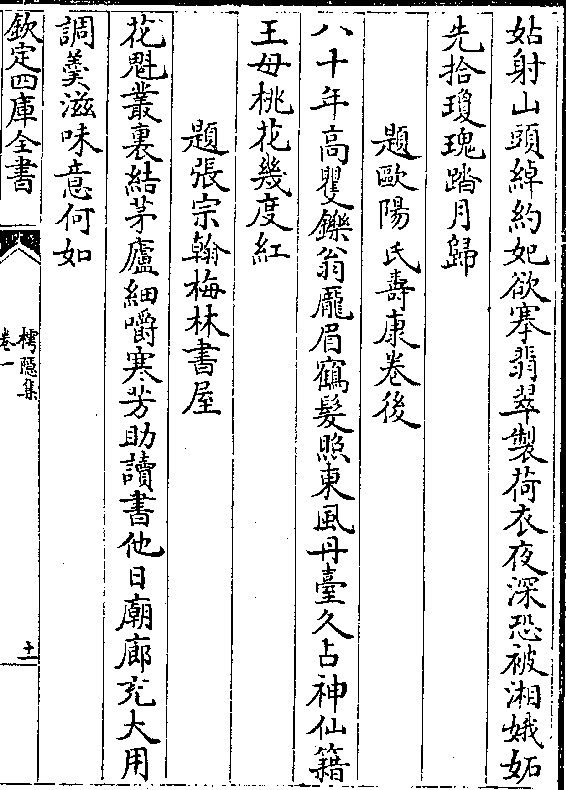 姑射山頭綽約妃欲搴翡翠製荷衣夜深恐被湘娥妬
先拾瓊瑰踏月歸
題歐陽氏壽康卷後
八十年高矍鑠翁厖眉鶴髮照東風丹臺久占神仙籍
王母桃花幾度紅
題張宗翰梅林書屋
花魁叢裏結茅廬細嚼寒芳助讀書他日廟廊充大用
調羹滋味意何如
欽定四庫全書
樗隱集
卷一
十一